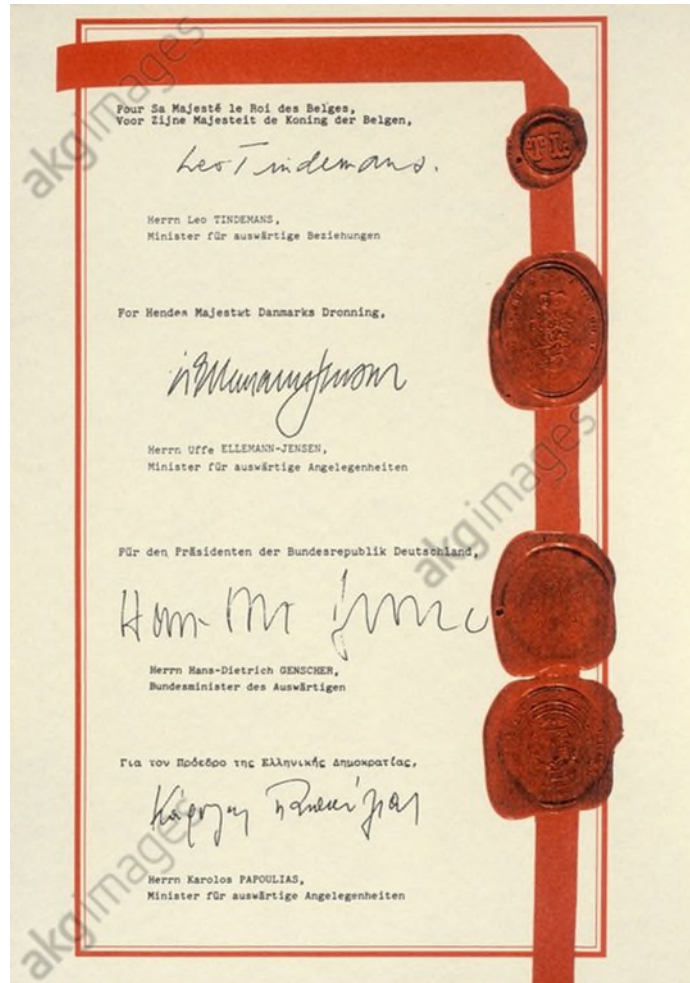 Pour Sa Majesté le Roi des Belges,
Voor Zijne Majesteit de Koning der Belgen,
Leo Tindemans.
Herrn Leo TINDEMANS,
Minister für auswärtige Beziehungen
For Hendes Majestæt Danmarks Dronning,
Herrn Uffe ELLEMANN-JENSEN,
Minister für auswärtige Angelegenheiten
Für den Präsidenten der Bundesrepublik Deutschland,
Herrn Hans-Dietrich GENSCHER,
Bundesminister des Auswärtigen
Για τον Πρόεδρο της Ελληνικής Δημοκρατίας,
Κάρολος Παπούλιας
Herrn Karolos PAPOULIAS,
Minister für auswärtige Angelegenheiten
TL
akgimages
akgimages
akgimages